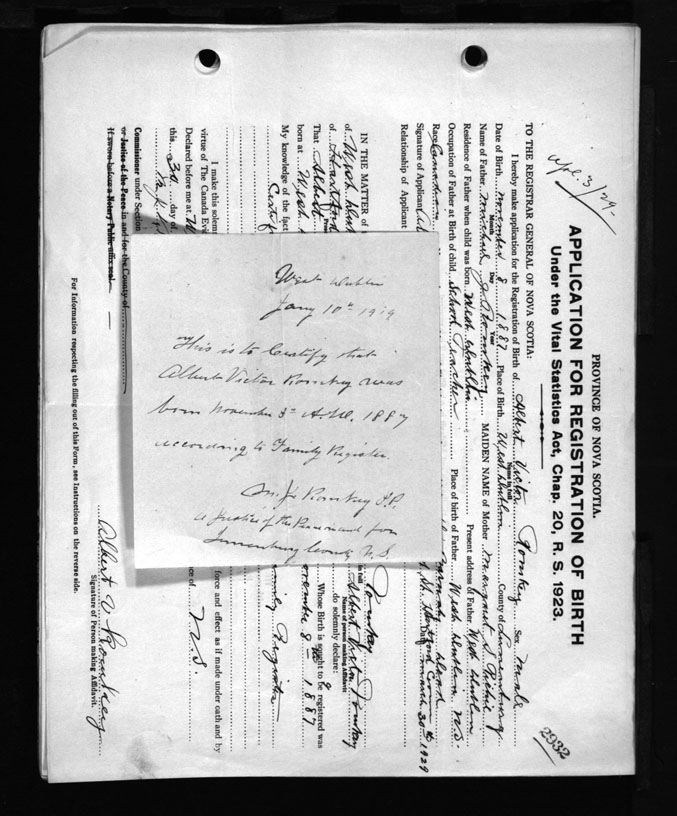 PROVINCE OF NOVA SCOTIA.
APPLICATION FOR REGISTRATION OF BIRTH
Under the Vital Statistics Act, Chap. 20, R. S. 1923.
Apl. 3/29-
2932
TO THE REGISTRAR GENERAL OF NOVA SCOTIA:
I hereby make application for the Registration of Birth of Albert Victor Romkey Sex Male
Name in full
Date of Birth November 8 1887 Place of Birth West Dublin County of Lunenburg
Month Day Year
Name of Father Michael J. Romkey MAIDEN NAME of Mother Margaret S
Residence of Father when child was born West Dublin Present address of Father West Dublin
Occupation of Father at Birth of child School Teacher Place of birth of Father West Dublin N.S.
Race Canadian
Signature of Applicant Hartford Conn Date March 30th 1929
Relationship of Applicant
IN THE MATTER of Romkey
in full
of West Albert Victor Romkey
Name of person making Affidavit
of Hartford do solemnly declare:
That Albert Whose Birth is sought to be registered was
born at West November 8th 1887
My knowledge of the fact Family Register
I make this solemn force and effect as if made under oath and by
virtue of The Canada Evi
Declared before me at N.S.
this 30 day of
Commissioner under Section
or Justice of the Peace in and for the County of
If sworn before a Notary Public affix seal.
Albert V Romkey
Signature of Person making Affidavit.
For Information respecting the filling out of this Form, see Instructions on the reverse side.
West Dublin
Jany 10th 1919
This is to Certify that
Albert Victor Romkey was
born November 3rd A.D. 1887
according to Family Register.
M. J. Romkey J.P.
a Justice of the Peace in and for
Lunenburg County N.S.